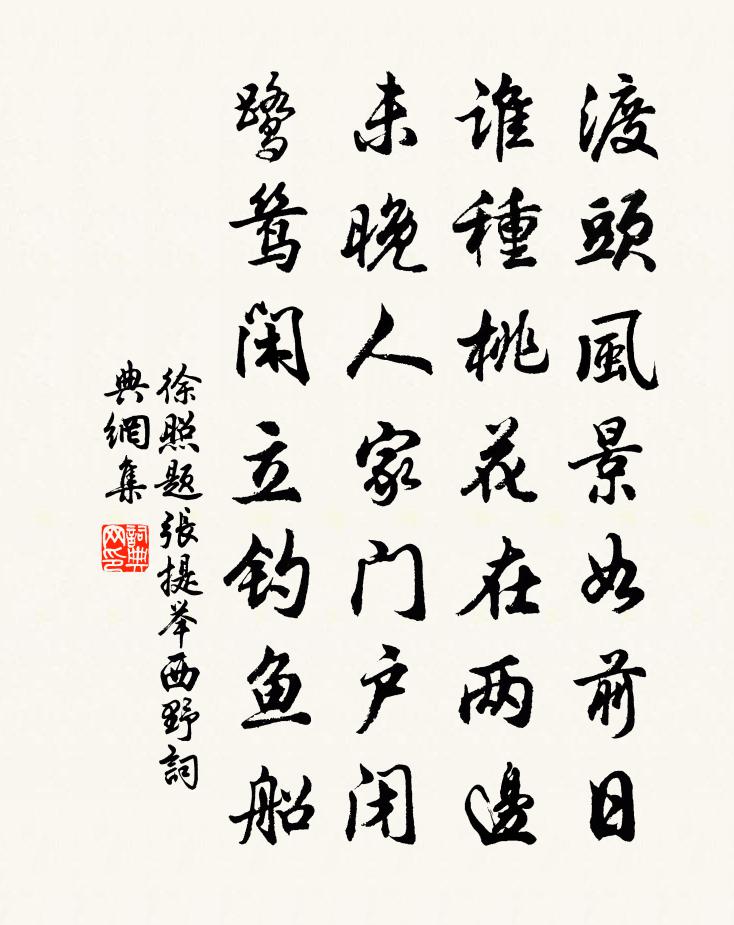 渡頭風景如前日
谁種桃花在两邊
未晚人家门户闭
鹭鸶闲立钓鱼船
徐照题張提举西野詞
典網集
詞典网印